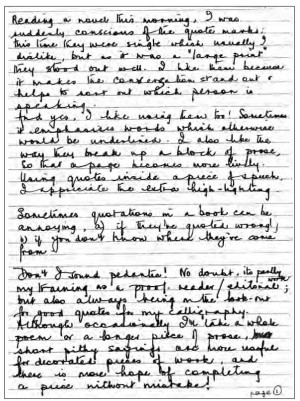 Reading a novel this morning. I was
suddenly conscious of the quote marks;
this time they were single which usually I
dislike, but as it was a "large print"
they stood out well. I like them because
it makes the conversation stand out &
helps to sort out which person is
speaking.
And yes, I like using them too! Sometimes
it emphasises words which otherwise
would be underlined. I also like the
way they break up a block of prose,
so that a page becomes more lively.
Using quotes inside a piece of speech,
I appreciate the extra high-lighting.
Sometimes quotations in a book can be
annoying, a) if they're quoted wrong,
b) if you don't know where they've come
from!
Don't I sound pedantic! No doubt, its really
my training as a proof reader/editorial work;
but also always being on the look-out
for good quotes for my calligraphy.
Although occasionally I'll take a whole
poem or a longer piece of prose,
short pithy sayings are more useful
for decorated pieces of work, and
there is more hope of completing
a piece without mistake!
page 1